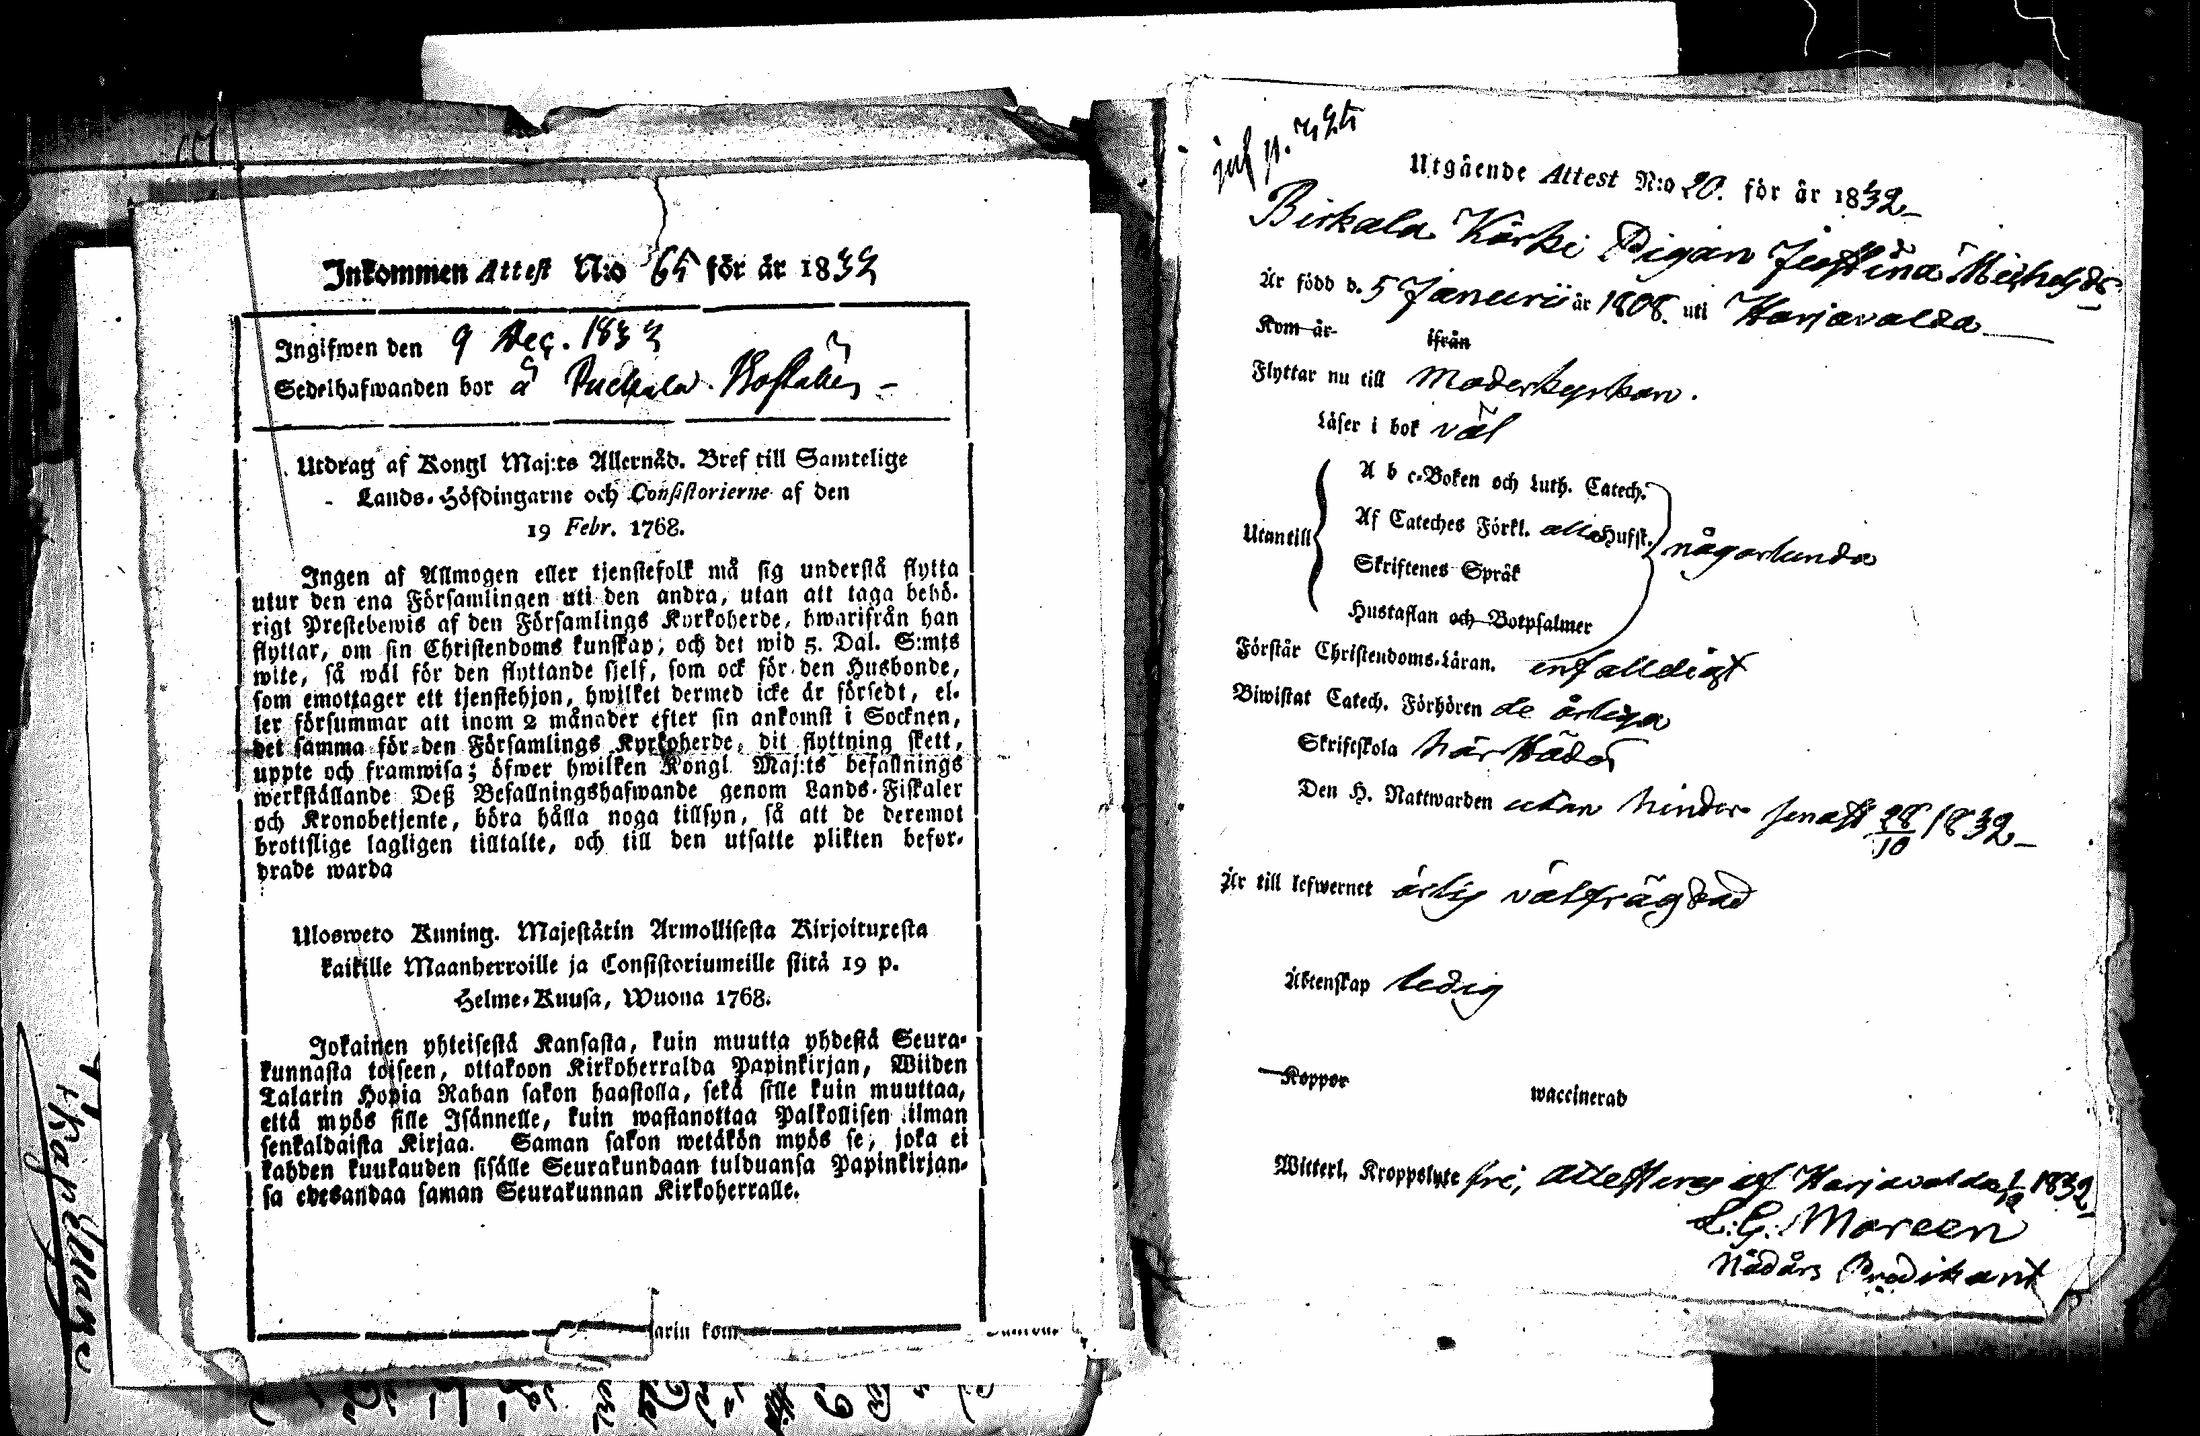 Inkommen Attest N:o 65 för år 1832
Ingifwen den 9 Dec. 1832
Sedelhafwanden bor å
Utdrag af Kongl Maj:ts Allernåd. Bref till Samtelige
Lands-Höfdingarne och Consistorierne af den
19 Febr. 1768.
Ingen af Allmogen eller tjenstefolk må sig understå flytta
utur den ena Församlingen uti den andra, utan att taga behö-
rigt Prestebewis af den Församlings Kyrkoherde, hwarifrån han
flyttar, om sin Christendoms kunskap; och det wid 5. Dal. S:mts
wite, så wäl för den flyttande sjelf, som ock för den Husbonde,
som emottager ett tjenstehjon, hwilket dermed icke är försedt, el-
ler försummar att inom 2 månader efter sin ankomst i Socknen,
det samma för den Församlings Kyrkoherde, dit flyttning skett,
uppte och framwisa; öfwer hwilken Kongl. Maj:ts befallnings
werkställande Deß Befallningshafwande genom Lands-Fiskaler
och Kronobetjente, böra hålla noga tillsyn, så att de deremot
brottslige lagligen tilltalte, och till den utsatte plikten befor-
drade warda
Ulosweto Kuning. Majestätin Armollisesta Kirjoituxesta
kaikille Maanherroille ja Consistoriumeille siitä 19 p.
Helme-Kuusa, Wuona 1768.
Jokainen yhteisestä Kansasta, kuin muutta yhdestä Seura-
kunnasta toiseen, ottakoon Kirkoherralda Papinkirjan, Wiiden
Talarin Hopia Rahan sakon haastolla, sekä sille kuin muuttaa,
että myös sille Isännelle, kuin wastanottaa Palkollisen ilman
senkaldaista Kirjaa. Saman sakon wetäkön myös se, joka ei
kahden kuukauden sisälle Seurakundaan tulduansa Papinkirjan-
sa edesandaa saman Seurakunnan Kirkoherralle.
arin kom
Utgående Attest N:o 20. för år 1832
Birkala Kärki Pigan Justina Michelsdr
Är född d. 5 Januarii år 1808. uti Harjavalda
Kom år ifrån
Flyttar nu till Moderkyrkan.
Läser i bok väl
A b c-Boken och Luth. Catech.
Af Cateches Förkl. alla Hufst.
Utantill någorlunda
Skriftenes Språk
Hustaflan och Botpsalmer
Förstår Christendoms-Läran. enfalldigt
Biwistat Catech. Förhören de årliga
Skriftskola här städes
Den H. Nattwarden utan hinder senast 28/10 1832
Är till lefwernet ärlig välfrägdad
Äktenskap ledig
Koppor waccinerad
Witterl. Kroppslyte fri, Attesteras af Harjavalda 1/12 1832
L: G: Moreen
Nådårs Predikant